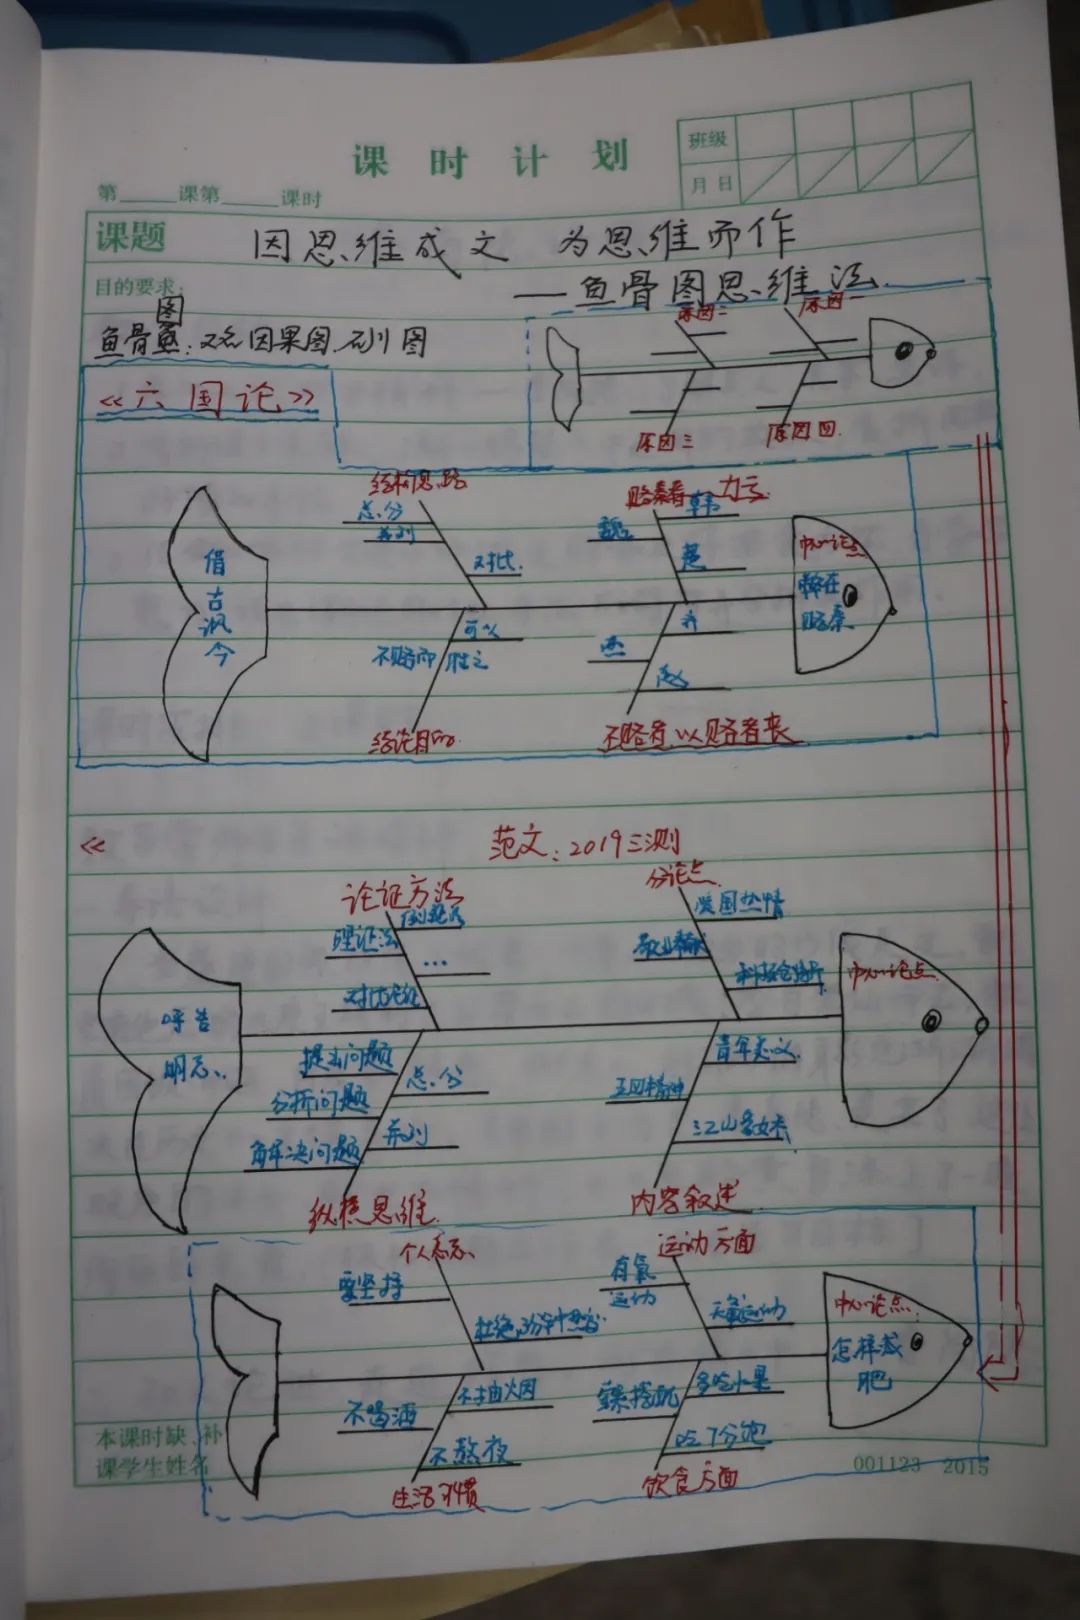 课时计划
班级
月日
第____课第____课时
课题
因思维成文 为思维而作
目的要求:
——鱼骨图思维法
图
鱼骨鱼:又名因果图、石川图
原因二
原因一
原因三
原因四
《六国论》
结构思路
总、分
并列
对比
赂秦者 力亏
韩
魏
楚
中心论点
弊在
赂秦
借
古
讽
今
可以
不赂而
胜之
齐
燕
赵
结论目的
不赂者以赂者丧
《
范文:2019三测
论证方法
例证法
理证法
...
对比论证
分论点
爱国热情
敬业精神
科技创新
中心论点
呼告
明志
提出问题
总、分
分析问题
并列
解决问题
纵横思维
青年意义
五四精神
江山多娇
内容叙述
个人意志
要坚持
运动方面
有氧
运动
无氧运动
中心论点
怎样减
肥
不抽烟
不喝酒
不熬夜
生活习惯
多吃水果
吃7分饱
饮食方面
本课时缺、补
课学生姓名
001123 2015